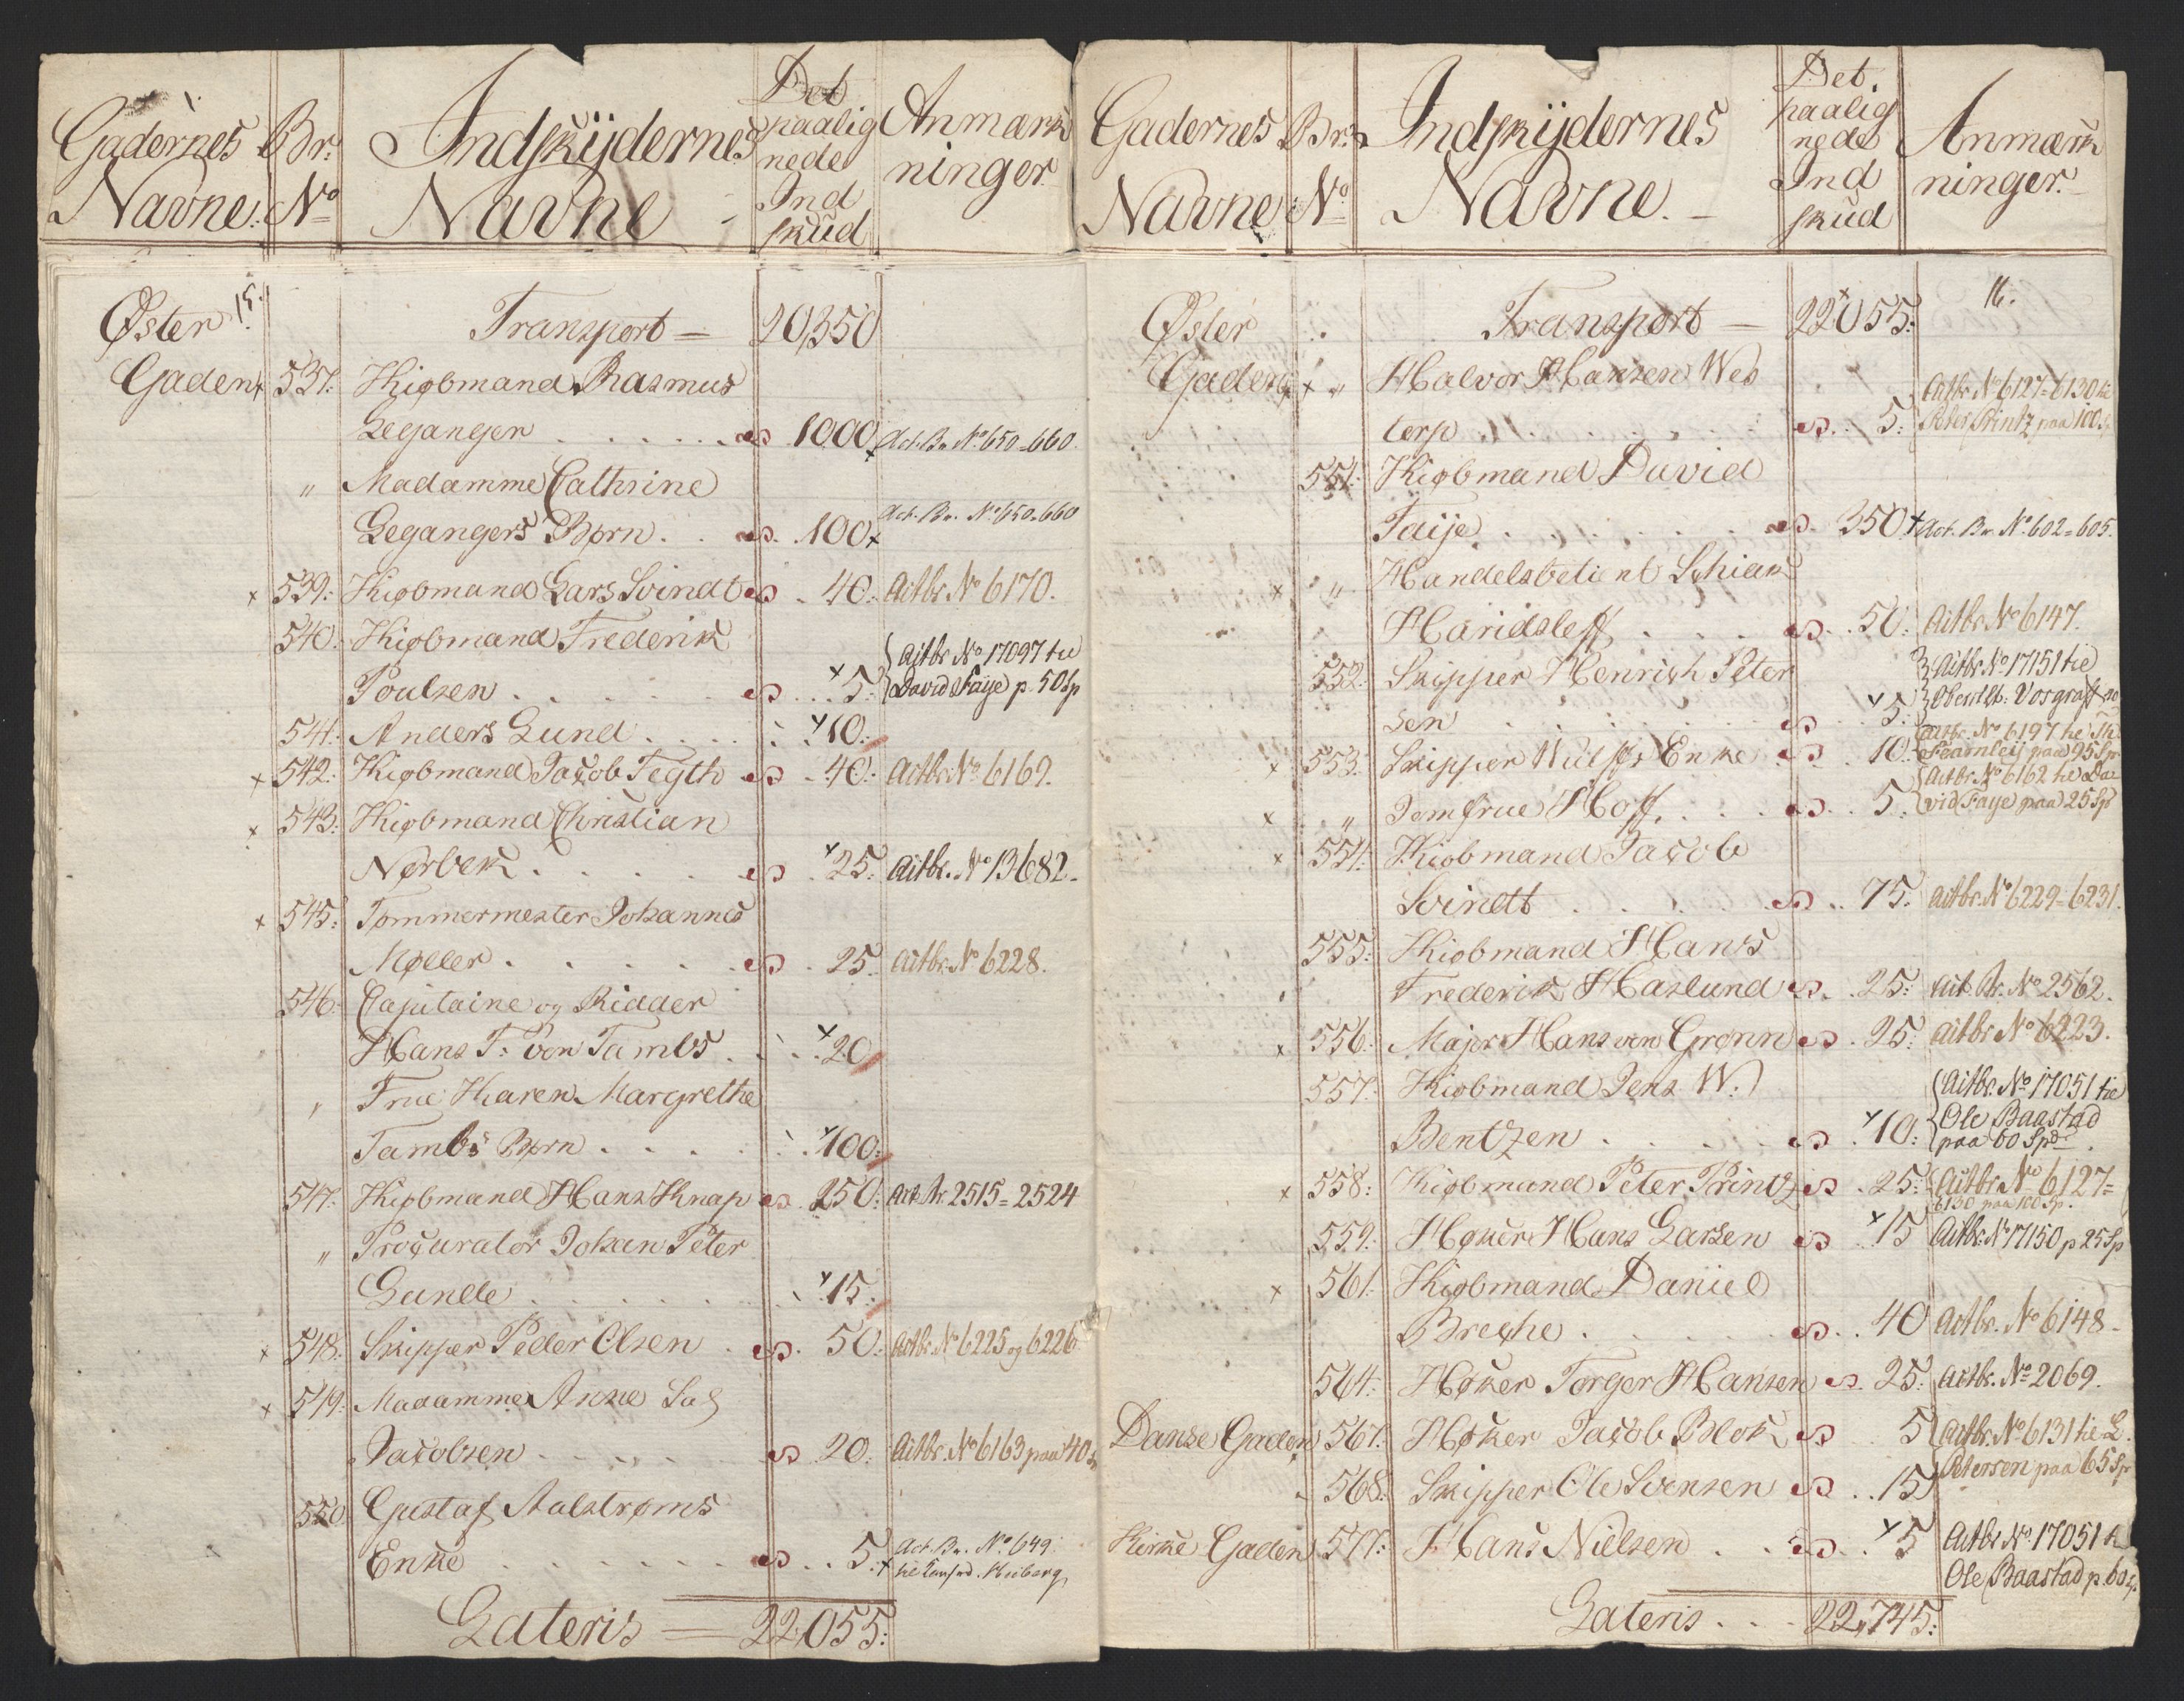 Gadernes Navne. Br: No Indskijdernes Navne Det paalig nede Ind skud Anmærk ninger
15.
Øster Transport = 20,350
Gaden x 537: Kiøbmand Rasmus
Leganger . . . . . . 1000 x Act. Br. No. 650=660.
" Madamme Cathrine
Legangers Børn . . 100 x Act. Br. No. 650=660
x 539: Kiøbmand Lars Svindt 40: Actbr. No 6170.
540: Kiøbmand Frederik
Poulsen . . . . x 5: Actbr. No 17097 til David Faye p. 50 Sp
541: Anders Lund . . . . x 10:
x 542: Kiøbmand Jacob Tegth 40: Actbr. No 6169.
x 543: Kiøbmand Christian
Nørbek . . . . . x 25: Actbr. No 13682.
x 545: Tømmermester Johannes
Møller . . . . . 25. Actbr. No 6228.
546: Capitaine og Ridder
Hans T: von Tambs . . x 20
" Frue Karen Margrethe
Tambs Børn . . . . x 100:
547: Kiøbmand Hans Knap 250: Act. Nr. 2515=2524
" Procurator Johan Peter
Lunde . . . . . x 15:
x 548: Skipper Peder Olsen . 50: Actbr. No 6225 og 6226
x 549: Madamme Anne Sal
Jacobsen . . . . . 20. Actbr. No 6163 paa 40 Sp
550 Gustaf Aalstrøms
Enke . . . . . . 5. x Act. Br. No. 649.
Lateris = 22,055:
Gadernes Navne Br: No Indskijdernes Navne. Det paalig nede Ind skud Anmærk ninger.
16.
Øster Transport = 22055:
Gaden x " Halvor Hansen Wes
terp . . . . . . . 5: Actbr. No 6127=6130 til Peter Printz paa 100 Sp
551: Kiøbmand David
Faije . . . . . . 350 x Act. Br. No. 602=605.
x " Handelsbetient Schiak
Haridsleff . . . . 50: Actbr. No 6147.
552: Skipper Henrich Peter
sen . . . . . x 5: Actbr. No 17151 til
x 553: Skipper Wulfs Enke 10: Actbr. No 6197 til Th. Fearnleij paa 95 Sp
x " Jomfrue Hoff . . . . 5: Actbr. No 6162 til Da vid Faye paa 25 Sp
x 554: Kiøbmand Jacob
Svindt . . . . . 75. Actbr. No 6229=6231.
555: Kiøbmand Hans
Frederik Haslund 25: Act. Br. No 2562.
x 556: Major Hans von Grønn 25: Actbr. No 6223.
557: Kiøbmand Jens W.
Bentzen . . . . . x 10: Actbr. No 17051 til Ole Baastad paa 60 Spd
x 558: Kiøbmand Peter Printz 25: Actbr. No 6127= 6130 paa 100 Sp.
559: Høker Hans Larsen x 15 Actbr. No 17150 p 25 Sp
x 561: Kiøbmand Daniel
Breche . . . . . 40 Actbr. No 6148.
564: Høker Torger Hansen 25: Actbr. No 2069.
Danse Gaden 567: Høker Jacob Blok 5 Actbr. No 6131 til L.
568: Skipper Ole Svensen . . 15 Petersen paa 65 Sp
Kirke Gaden 577: Hans Nielsen . . x 5 Actbr. No 17051 til
Ole Baastad p. 60 Sp.
Lateris . . . 22,745: